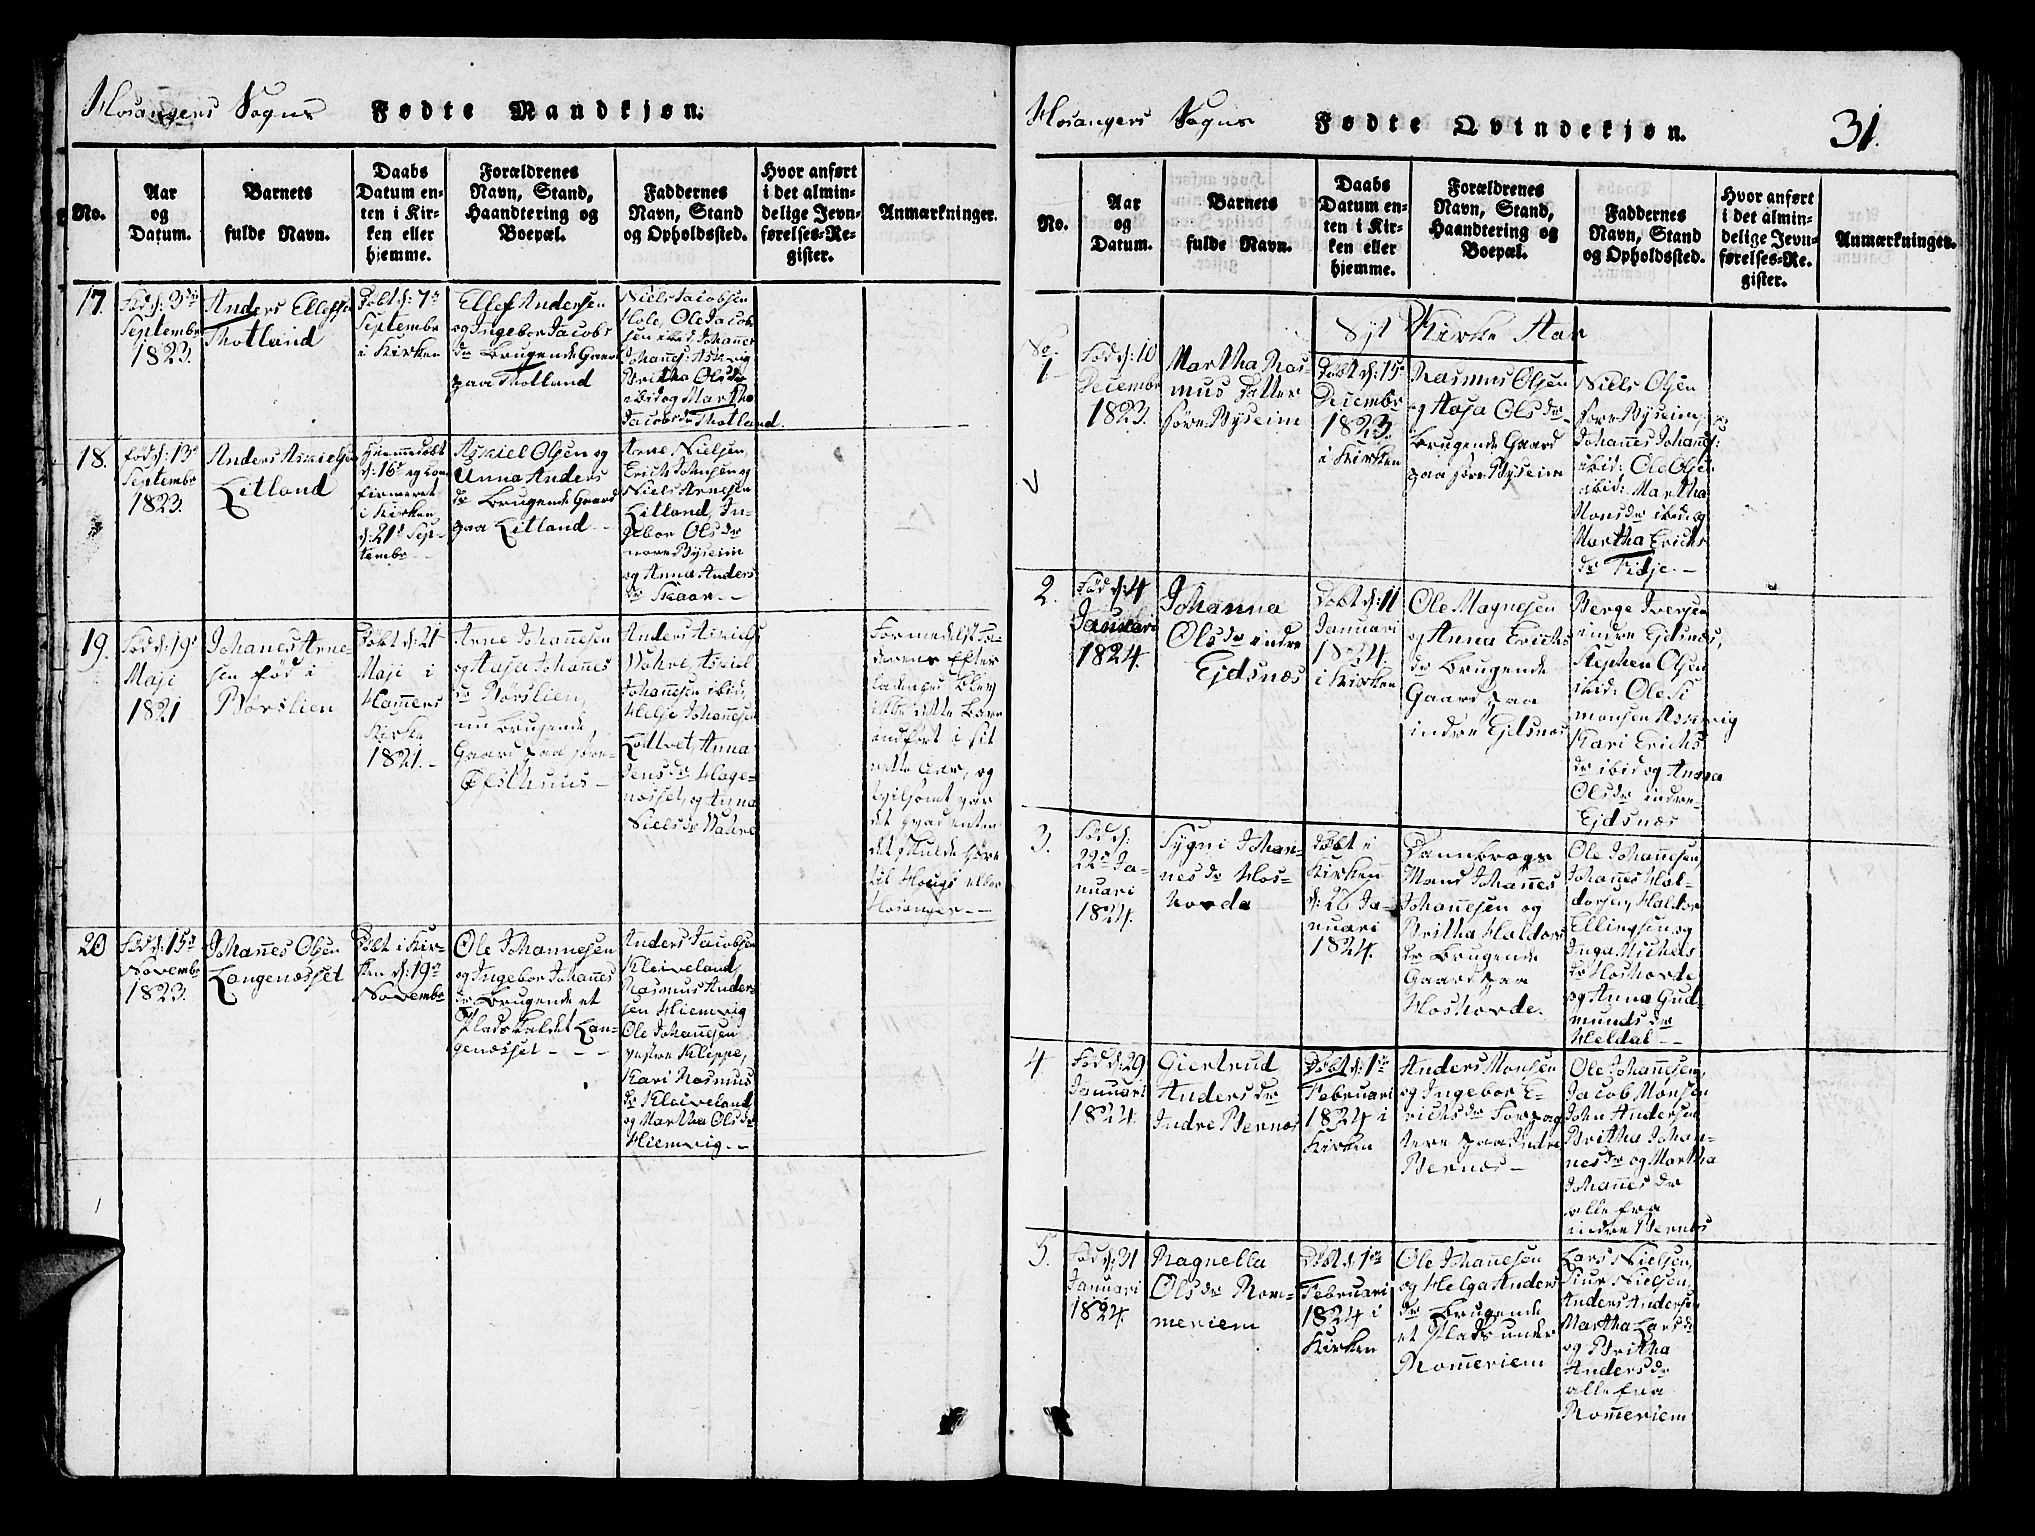 Hosangers Sogns Fødte Mandkjøn.
No.
Aar
og
Datum.
Barnets
fulde Navn.
Daabs
Datum en-
ten i Kir-
ken eller
hjemme.
Forældrenes
Navn, Stand,
Haandtering og
Boepæl.
Faddernes
Navn, Stand
og Opholdssted.
Hvor anført
i det almin-
delige Jevn-
førelses-Re-
gister.
Anmærkninger.
17.
Fød d: 3de
Septembr
1823.
Anders Ellefsen
Thotland
Døbt d: 7de
Septembr
i Kirken
Ellef Andersen
og Ingebor Jacobs
dr Brugende Gaard
paa Thotland
Niels Jacobsen
Hole, Ole Jacob
sen ibid, Johannes
Johannes: Askvig
Britha Olsdr
ibid og Martha
Jacobsdr Thotland.
18.
Fød d: 13de
Septembr
1823.
Anders Askielsen
Litland
Hiemmedøbt
d: 16de og con
firmeret
i Kirken
d: 21de Sep-
tembr
Askiel Olsen og
Unna Anders
dr Brugende Gaard
paa Litland
Arne Nielsen,
Erich Johnsen og
Niels Arnesen
Litland, In-
gebor Olsdr
nore Byseim
og Anna Anders
dr Skaar
19.
Fød d: 19de
Maji
1821
Johanes Arne-
sen fød i
Børslien
Døbt d: 21
Maji i
Hamers
Kirke
1821.
Arne Johannesen
og Aasa Johannes
dr Børslien,
nu brugende
Gaard paa søre-
Øfsthuus
Anders Askiels
Wahre, Askiel
Johannesen ibid,
Helje Johannesen
Lødtvet, Anna
Jensdr Hage-
næsset, og Anna
Nielsdr Wahre
Formedelst Fa-
derens Efter
ladenhed blev
ikke dette Barn
indført i sit
rette Aar, og
tvilsomt var
det hvad enten
det skulde høre
til Hougs eller
Hosanger
20
Fød d: 15de
Novembr
1823.
Johannes Olsen
Langenæsset
Døbt i Kir-
ken d: 19de
Novembr
Ole Johannesen
og Ingebor Johannes
dr Brugende et
Plads kaldet Lan-
genæsset
Anders Jacobsen
Kleiveland,
Rasmus Anders-
sen Hiemvig
Ole Johannesen
vestre Kleppe,
Kari Rasmus
dr Kleiveland
og Martha Olsdr
Hiemvig
Hosangers Sogns Fødte Qvindekjøn. 31.
No.
Aar
og
Datum.
Barnets
fulde Navn.
Daabs
Datum en-
ten i Kir-
ken eller
hjemme.
Forældrenes
Navn, Stand,
Haandtering og
Boepæl.
Faddernes
Navn, Stand
og Opholdssted.
Hvor anført
i det almin-
delige Jevn-
førelses-Re-
gister.
Anmærkninger.
Nyt Kirke Aar
No.
1
Fød d: 10
Decembr
1823.
Martha Ras-
mus Datter
søre Byseim
Døbt d: 15de
Decembr
1823.
i Kirken
Rasmus Olsen
og Aasa Olsdr
Brugende Gaard
paa søre Byseim
Niels Olsen
søre Byseim,
Johanes Johanes:
ibid: Ole Olsen
ibid: Martha
Monsdr ibid og
Martha Erichs
dr Fidje.
2.
Fød d: 4
Januari
1824.
Johanna
Olsdr indre
Ejdsnæs
Døbt d: 11
Januari
1824.
i Kirken
Ole Magnesen
og Anna Erichs
dr Brugende
Gaard paa
indre Ejdsnæs
Berge Iversen
indre Ejdsnæs,
Stephen Olsen
ibid: Ole Si
monsen Askevig
Kari Erichs
dr ibid og Anna
Olsdr indre
Ejdsnæs
3.
Fød d:
22de Ja-
nuari
1824.
Sygni Johan-
nesdr Hos-
horde
Døbt i
Kirken
d: 26 Ja-
nuari
1824.
Dannebrogs
Mand Johannes
Johannesen og
Britha Haldors
dr Brugende
Gaard paa
Hoshorde.
Ole Johannesen,
Johannes Hal-
dorsen, Haldor
Ellingsen, og
Inga Michels
dr Hoshorde
og Anna Gud-
mundsdr
Heldal
4
Fød d: 29
Januari
1824.
Giertrud
Andersdr
Indre Bernæs
Døbt d: 1de
Februari
1824 i
Kirken
Anders Monsen
og Ingebor E-
richsdr Forpag
tere paa Indre
Bernæs
Ole Johannesen,
Jacob Monsen
John Andersen
Britha Johan-
nesdr og Martha
Johannesdr
alle fra
indre Bernæs
5.
Fød d: 31
Januari
1824.
Ragnella
Olsdr Rom-
meriem
Døbt d: 1de
Februari
1824 i
Kirken
Ole Johannesen
og Helga Anders
dr Brugende
et Plads under
Romeriem
Lars Nielsen,
Siur Nielsen,
Anders Andersen
Martha Larsdr
og Britha
Andersdr
alle fra
Romeriem